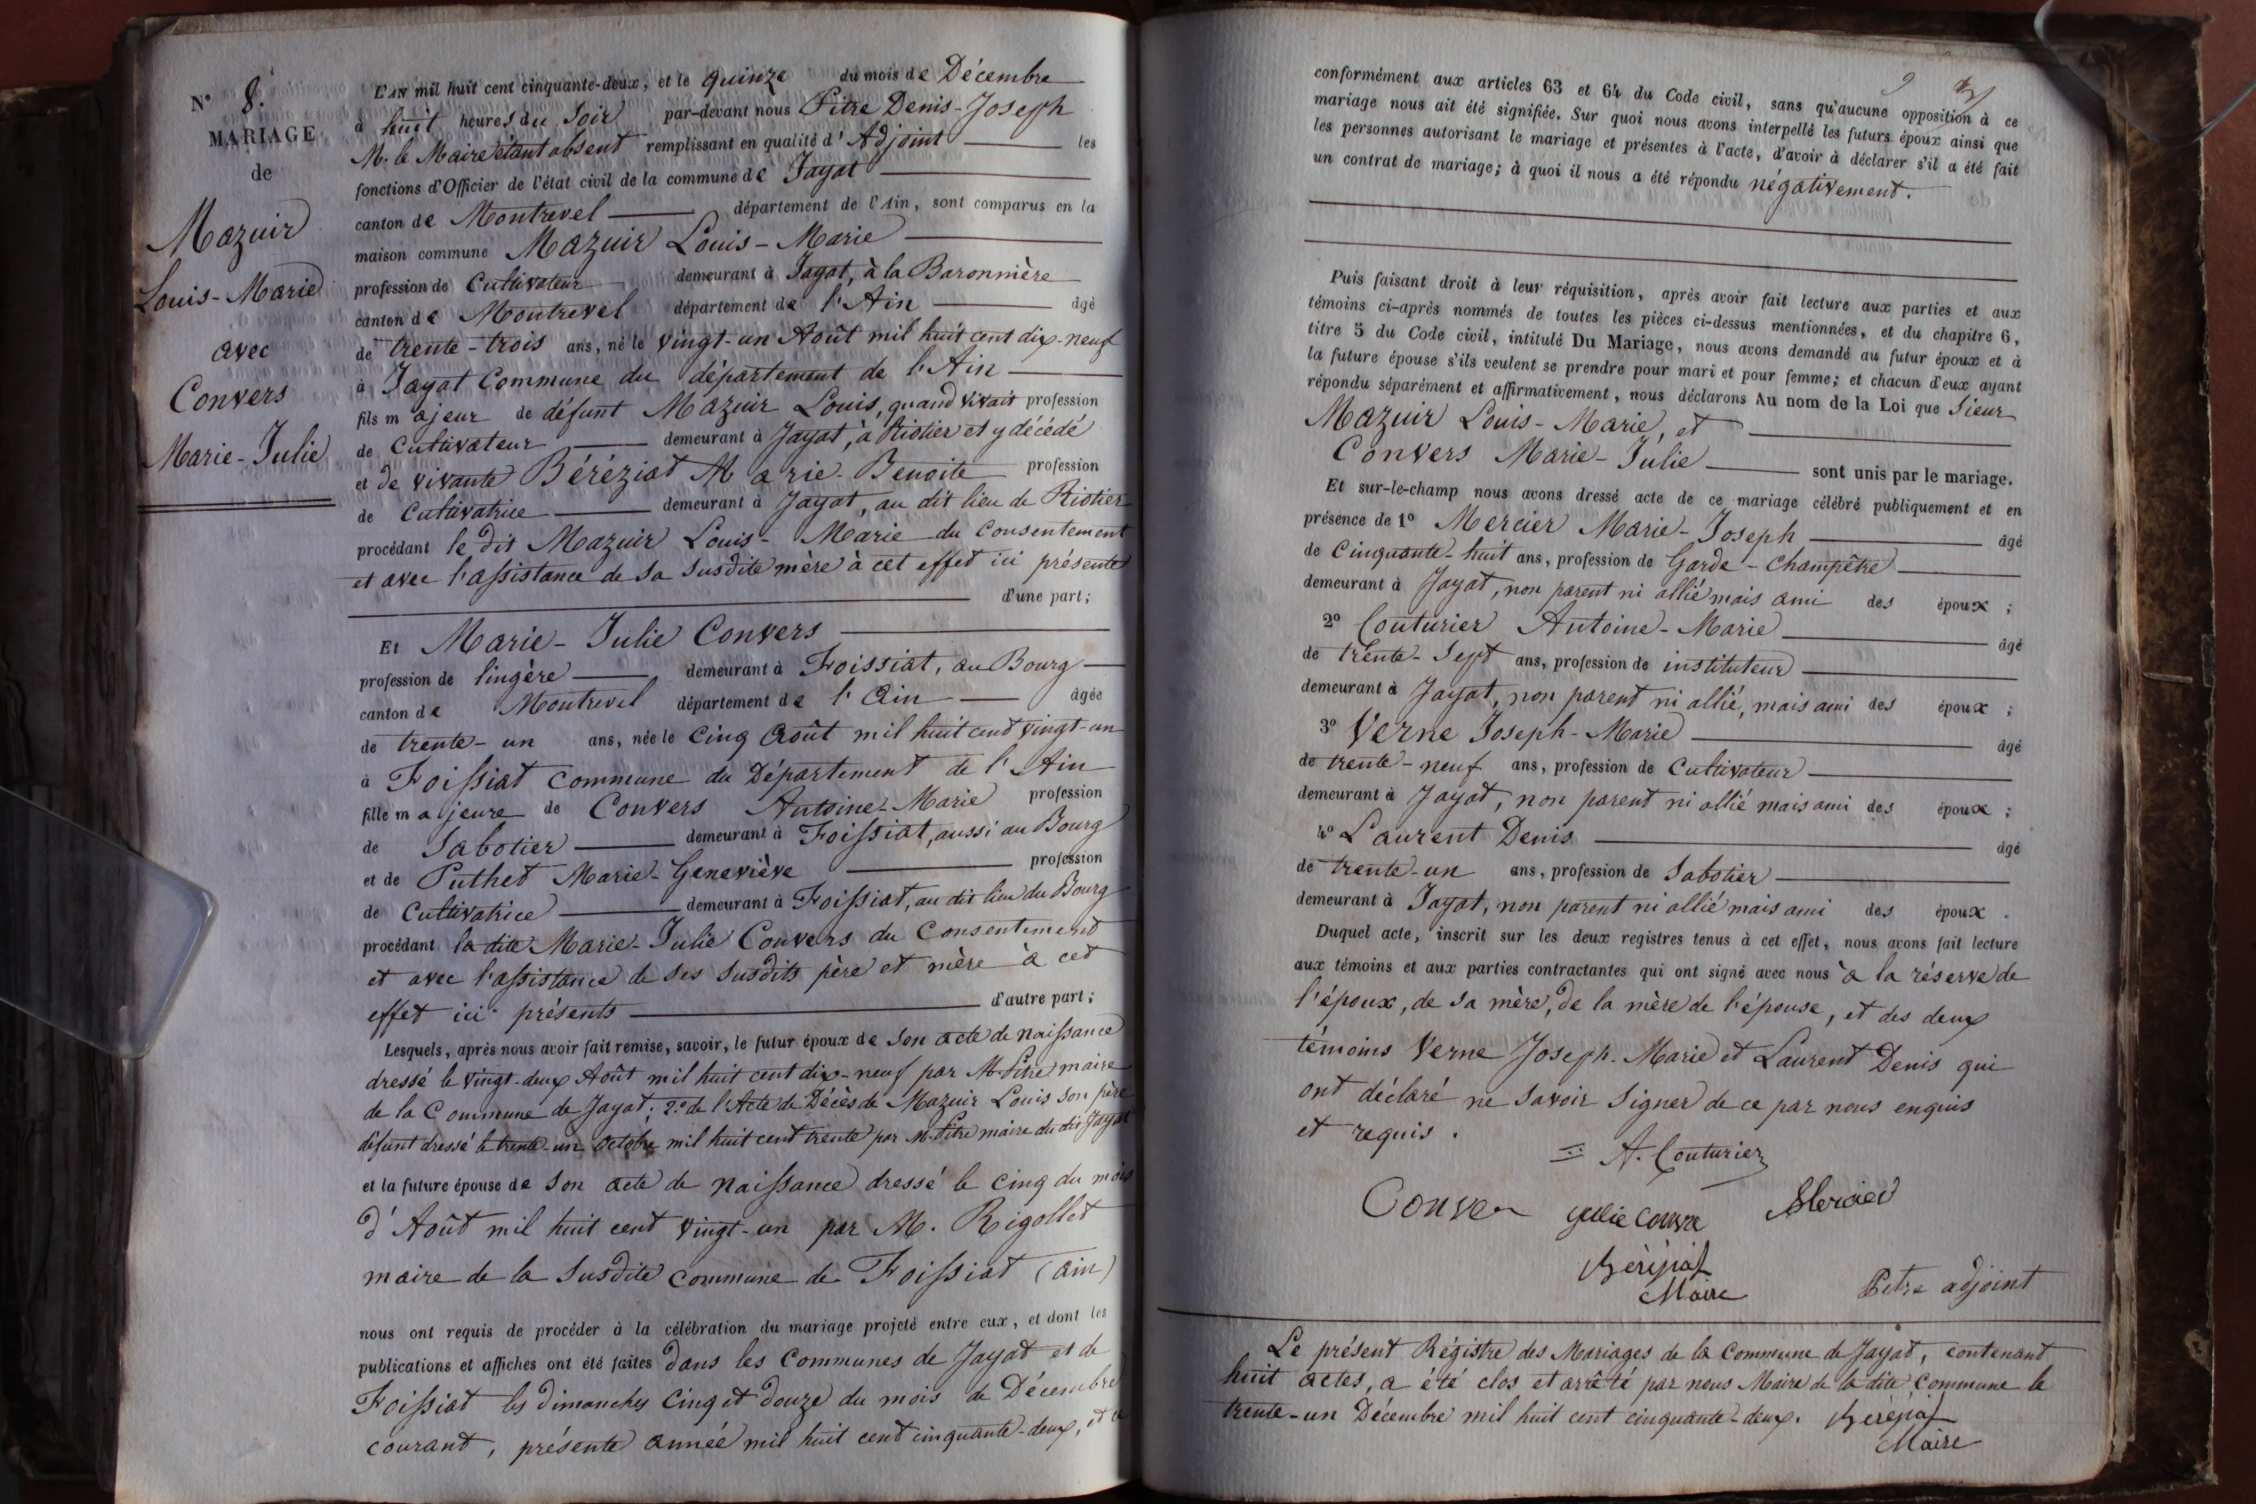 N° 8.
MARIAGE
de
Mazuir
Louis-Marie
avec
Convers
Marie-Julie
L'AN mil huit cent cinquante-deux, et le quinze du mois de Décembre
à huit heures du Soir par-devant nous Pitre Denis-Joseph
M. le Maire étant absent remplissant en qualité d'Adjoint les
fonctions d'Officier de l'état civil de la commune de Jayat
canton de Montrevel département de l'Ain, sont comparus en la
maison commune Mazuir Louis-Marie
profession de Cultivateur demeurant à Jayat, à la Baronnière
canton de Montrevel département de l'Ain âgé
de trente-trois ans, né le vingt-un Août mil huit cent dix-neuf
à Jayat Commune du département de l'Ain
fils majeur de défunt Mazuir Louis, quand vivait profession
de Cultivateur demeurant à Jayat, à Riotier et y décédé
et de vivante Béréziat Marie-Benoite profession
de Cultivatrice demeurant à Jayat, au dit lieu de Riotier
procédant le dit Mazuir Louis-Marie du Consentement
et avec l'assistance de sa susdite mère à cet effet ici présente
d'une part;
Et Marie-Julie Convers
profession de lingère demeurant à Foissiat, au Bourg
canton de Montrevel département de l'Ain âgée
de trente-un ans, née le Cinq Août mil huit cent vingt-un
à Foissiat commune du Département de l'Ain
fille majeure de Convers Antoine-Marie profession
de Sabotier demeurant à Foissiat, aussi au Bourg
et de Puthet Marie-Geneviève profession
de Cultivatrice demeurant à Foissiat, au dit lieu du Bourg
procédant la dite Marie-Julie Convers du Consentement
et avec l'assistance de ses susdits père et mère à cet
effet ici présents d'autre part;
Lesquels, après nous avoir fait remise, savoir, le futur époux de Son acte de naissance
dressé le vingt-deux Août mil huit cent dix-neuf par M. Pitre maire
de la Commune de Jayat; 2° de l'Acte de Décès de Mazuir Louis son père
défunt dressé le trente-un Octobre mil huit cent trente par M. Pitre maire du dit Jayat
et la future épouse de Son acte de naissance dressé le cinq du mois
d'Août mil huit cent vingt-un par M. Rigollet
maire de la susdite commune de Foissiat (Ain)
nous ont requis de procéder à la célébration du mariage projeté entre eux, et dont les
publications et affiches ont été faites dans les Communes de Jayat et de
Foissiat les dimanches cinq et douze du mois de Décembre
courant, présente année mil huit cent cinquante-deux, et ce
conformément aux articles 63 et 64 du Code civil, sans qu'aucune opposition à ce
mariage nous ait été signifiée. Sur quoi nous avons interpellé les futurs époux ainsi que
les personnes autorisant le mariage et présentes à l'acte, d'avoir à déclarer s'il a été fait
un contrat de mariage; à quoi il nous a été répondu négativement.
Puis faisant droit à leur réquisition, après avoir fait lecture aux parties et aux
témoins ci-après nommés de toutes les pièces ci-dessus mentionnées, et du chapitre 6,
titre 5 du Code civil, intitulé Du Mariage, nous avons demandé au futur époux et à
la future épouse s'ils veulent se prendre pour mari et pour femme; et chacun d'eux ayant
répondu séparément et affirmativement, nous déclarons Au nom de la Loi que Sieur
Mazuir Louis-Marie, et
Convers Marie-Julie sont unis par le mariage.
Et sur-le-champ nous avons dressé acte de ce mariage célébré publiquement et en
présence de 1° Mercier Marie-Joseph âgé
de Cinquante-huit ans, profession de Garde-Champêtre
demeurant à Jayat, non parent ni allié mais ami des époux;
2° Couturier Antoine-Marie âgé
de trente-Sept ans, profession de instituteur
demeurant à Jayat, non parent ni allié, mais ami des époux;
3° Verne Joseph-Marie âgé
de trente-neuf ans, profession de Cultivateur
demeurant à Jayat, non parent ni allié mais ami des époux;
4° Laurent Denis âgé
de trente-un ans, profession de Sabotier
demeurant à Jayat, non parent ni allié mais ami des époux.
Duquel acte, inscrit sur les deux registres tenus à cet effet, nous avons fait lecture
aux témoins et aux parties contractantes qui ont signé avec nous à la réserve de
l'époux, de sa mère, de la mère de l'épouse, et des deux
témoins Verne Joseph-Marie et Laurent Denis qui
ont déclaré ne savoir signer de ce par nous enquis
et requis.
A. Couturier
Conver Mercier
Béréziat
Maire Pitre adjoint
Le présent Régistre des Mariages de la Commune de Jayat, contenant
huit actes, a été clos et arrêté par nous Maire de la dite Commune le
trente-un Décembre mil huit cent cinquante-deux. Béréziat
Maire